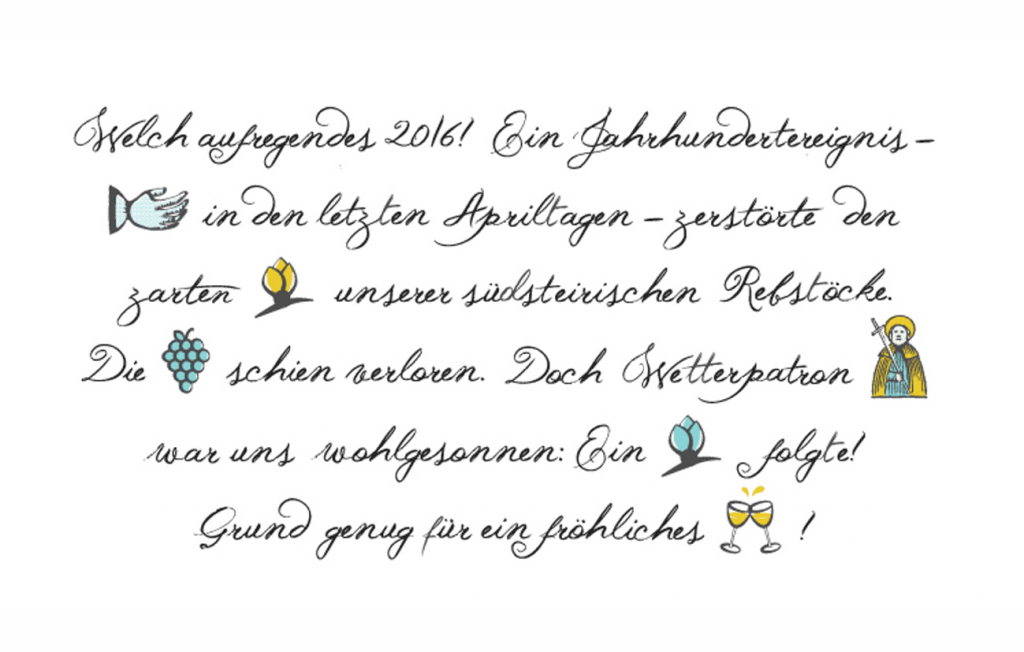 Welch aufregendes 2016! Ein Jahrhundertereignis –
in den letzten Apriltagen – zerstörte den
zarten unserer südsteirischen Rebstöcke.
Die schien verloren. Doch Wetterpatron
war uns wohlgesonnen: Ein folgte!
Grund genug für ein fröhliches !